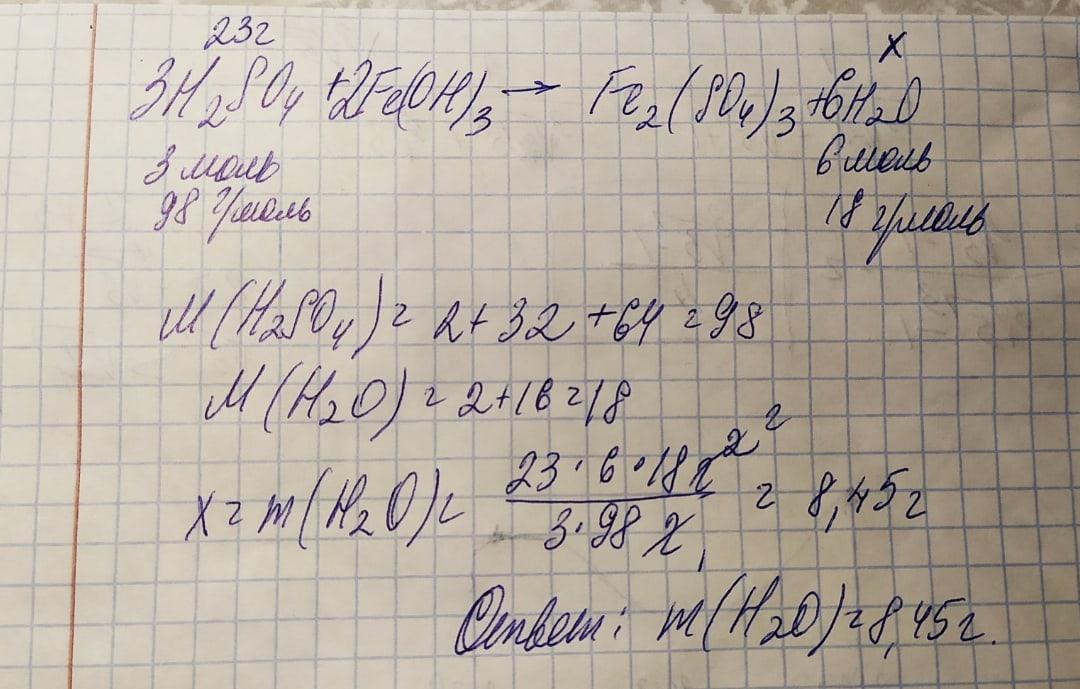 23г x
3H₂SO₄ + 2Fe(OH)₃ → Fe₂(SO₄)₃ + 6H₂O
3 моль 6 моль
98 г/моль 18 г/моль
M(H₂SO₄) = 2+32+64=98
M(H₂O) = 2+16=18
x = m(H₂O) = (23·6·18 г²)/(3·98 г) = 8,45г
Ответ: m(H₂O)=8,45г.